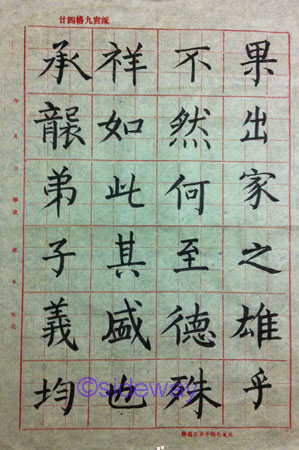 廿四格九宮紙
果出家之雄乎
不然何至德殊
祥如此其盛也
承襲弟子義均
©sideway